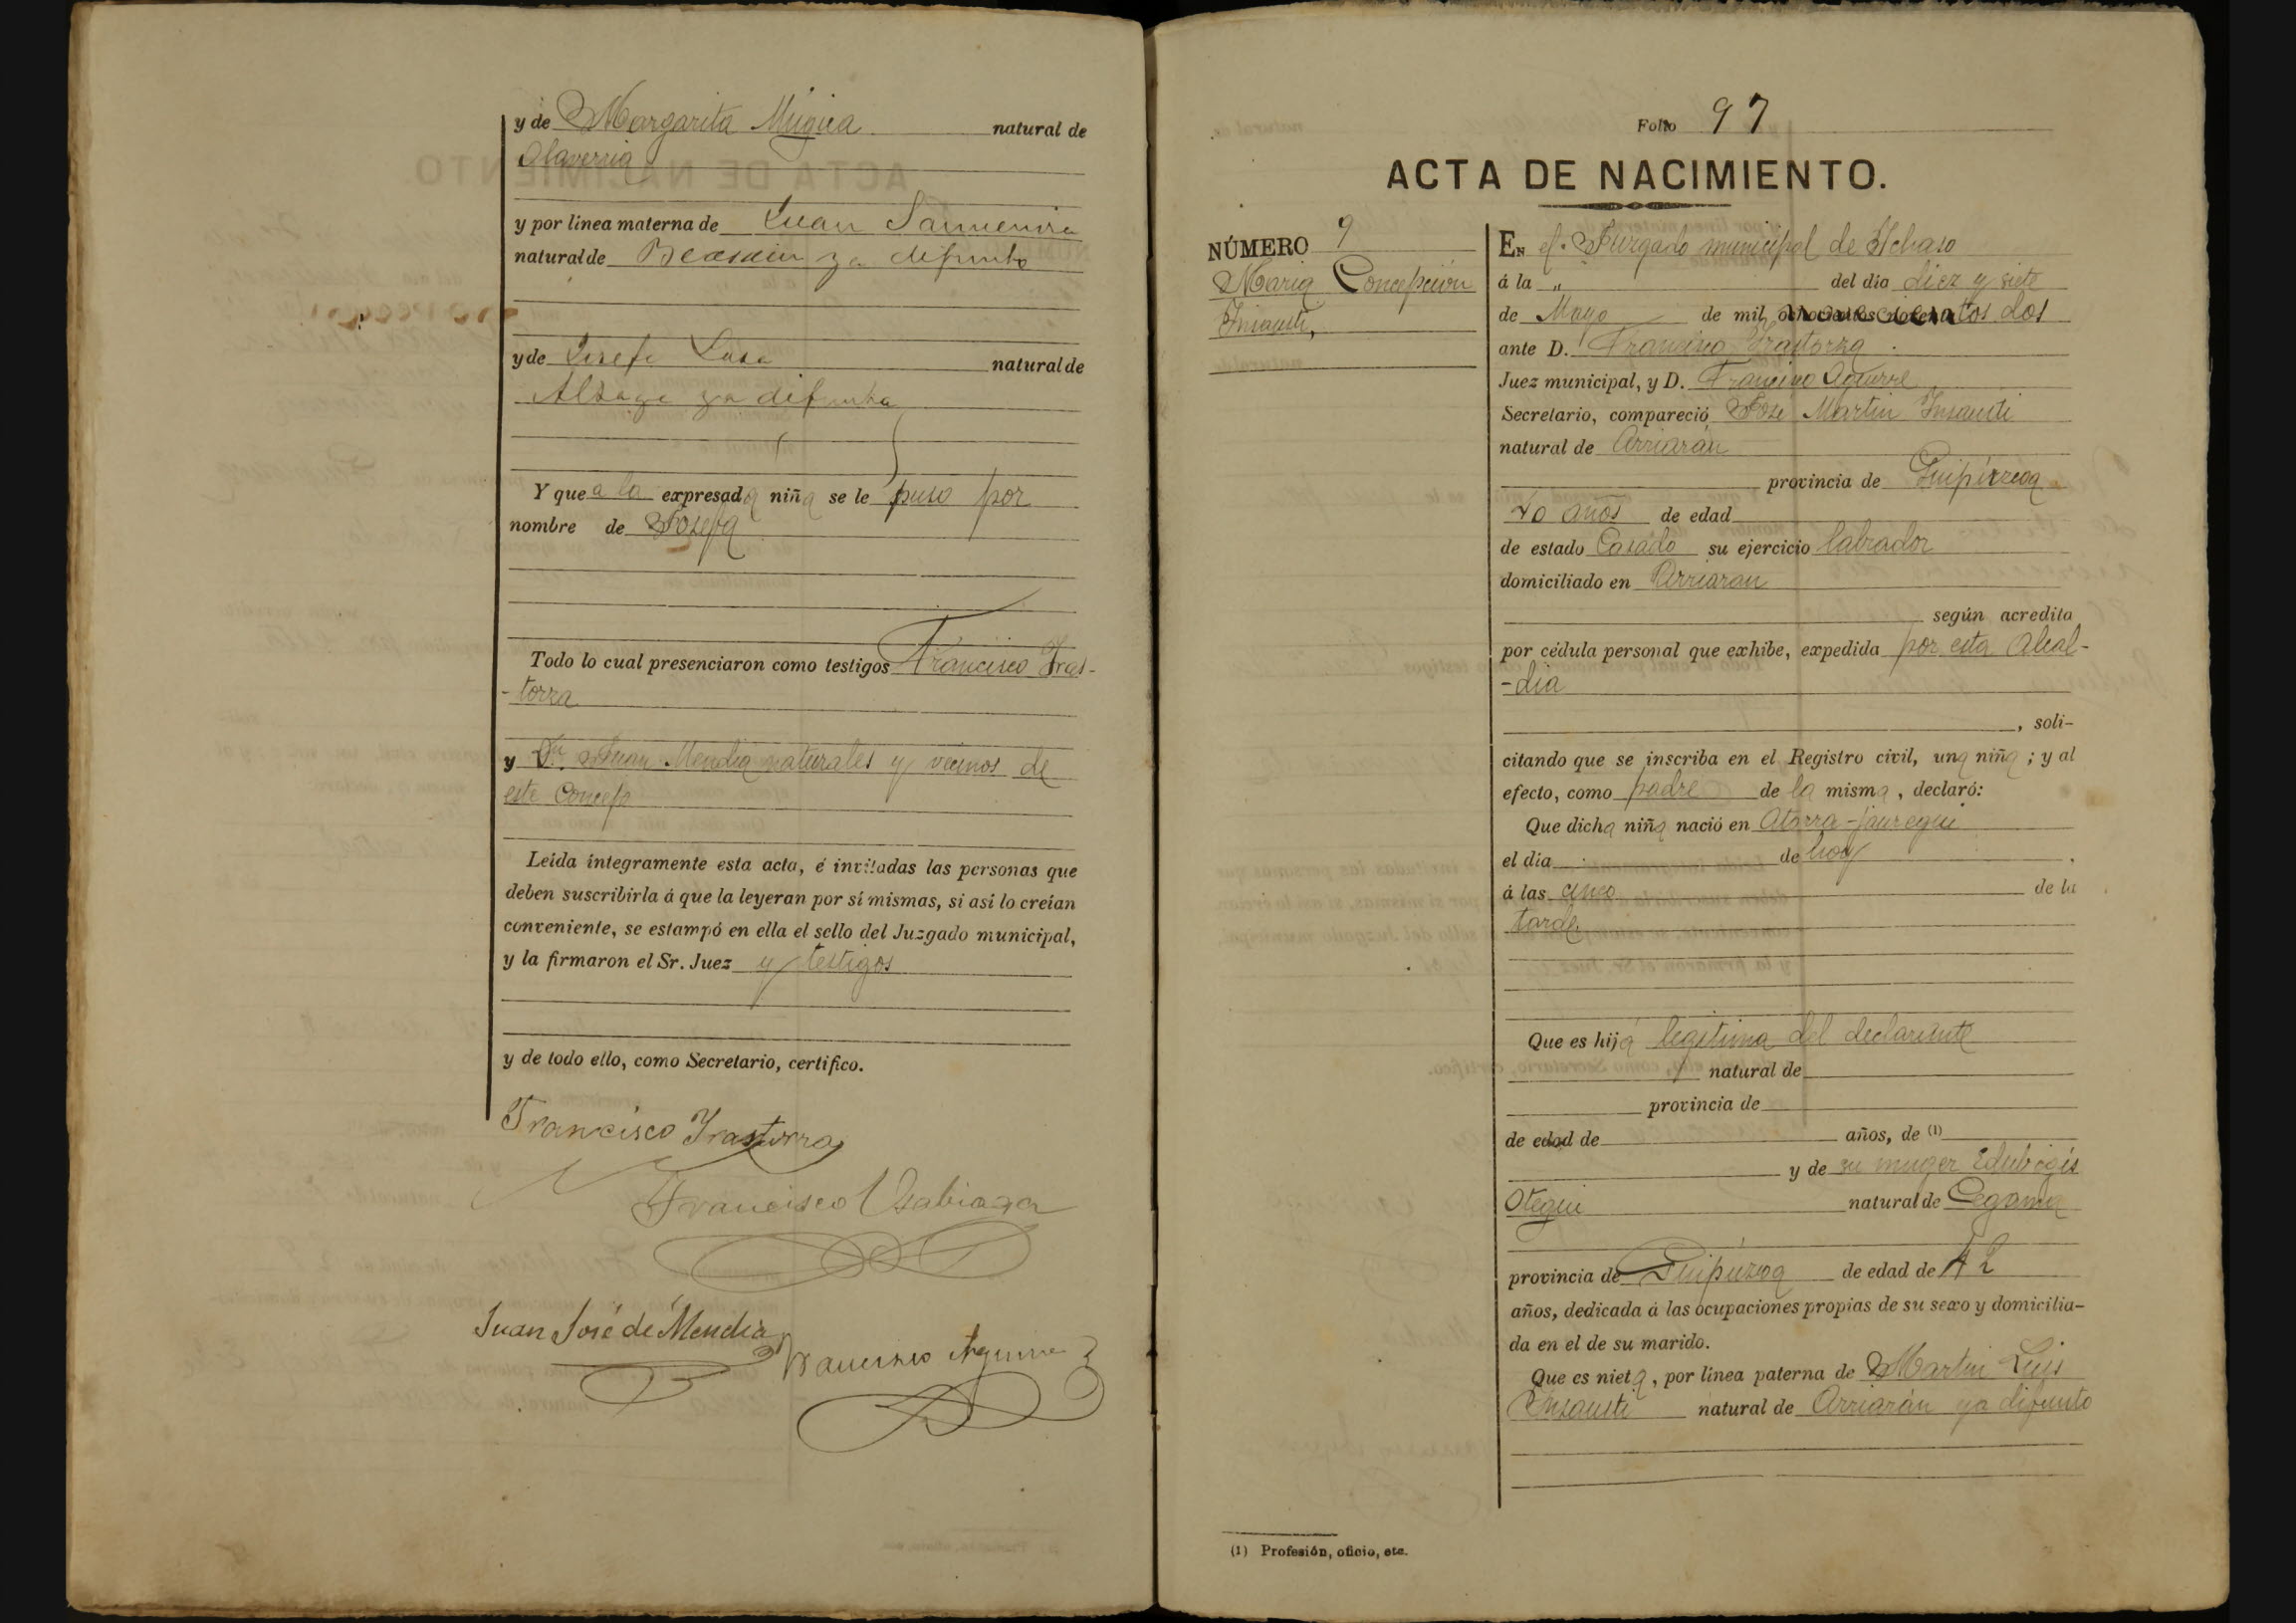 y de Margarita Múgica natural de
Olaverria
y por línea materna de Juan Sannemira
natural de Beasain ya difunto
y de Josefa Lasa natural de
Alzaga ya difunta
Y que a la expresada niña se le puso por
nombre de Josefa
Todo lo cual presenciaron como testigos Francisco Iras-
-torza
y Dn. Juan Mendia naturales y vecinos de
este Concejo
Leída íntegramente esta acta, é invitadas las personas que
deben suscribirla á que la leyeran por sí mismas, si así lo creían
conveniente, se estampó en ella el sello del Juzgado municipal,
y la firmaron el Sr. Juez y testigos
y de todo ello, como Secretario, certifico.
Francisco Irastorza
Francisco Usabiaga
Juan José de Mendia
Francisco Aguirre
Folio 97
ACTA DE NACIMIENTO.
NÚMERO 9
Maria Concepción
Insausti,
EN el Juzgado municipal de Ichaso
á la „ del día diez y siete
de Mayo de mil novecientos dos
ante D. Francisco Irastorza
Juez municipal, y D. Francisco Aguirre
Secretario, compareció José Martin Insausti
natural de Arriarán
provincia de Guipúzcoa
40 años de edad
de estado Casado su ejercicio labrador
domiciliado en Arriaran
según acredita
por cédula personal que exhibe, expedida por esta Alcal-
-dia
, soli-
citando que se inscriba en el Registro civil, una niña ; y al
efecto, como padre de la misma , declaró:
Que dicha niña nació en Atorra-jauregui
el día de hoy
á las cinco de la
tarde.
Que es hija legítima del declarante
natural de
provincia de
de edad de años, de (1)
y de su muger Edubogis
Otegui natural de Cegama
provincia de Guipúzcoa de edad de 42
años, dedicada á las ocupaciones propias de su sexo y domicilia-
da en el de su marido.
Que es nieta, por línea paterna de Martin Luis
Insausti natural de Arriarán ya difunto
(1) Profesión, oficio, etc.